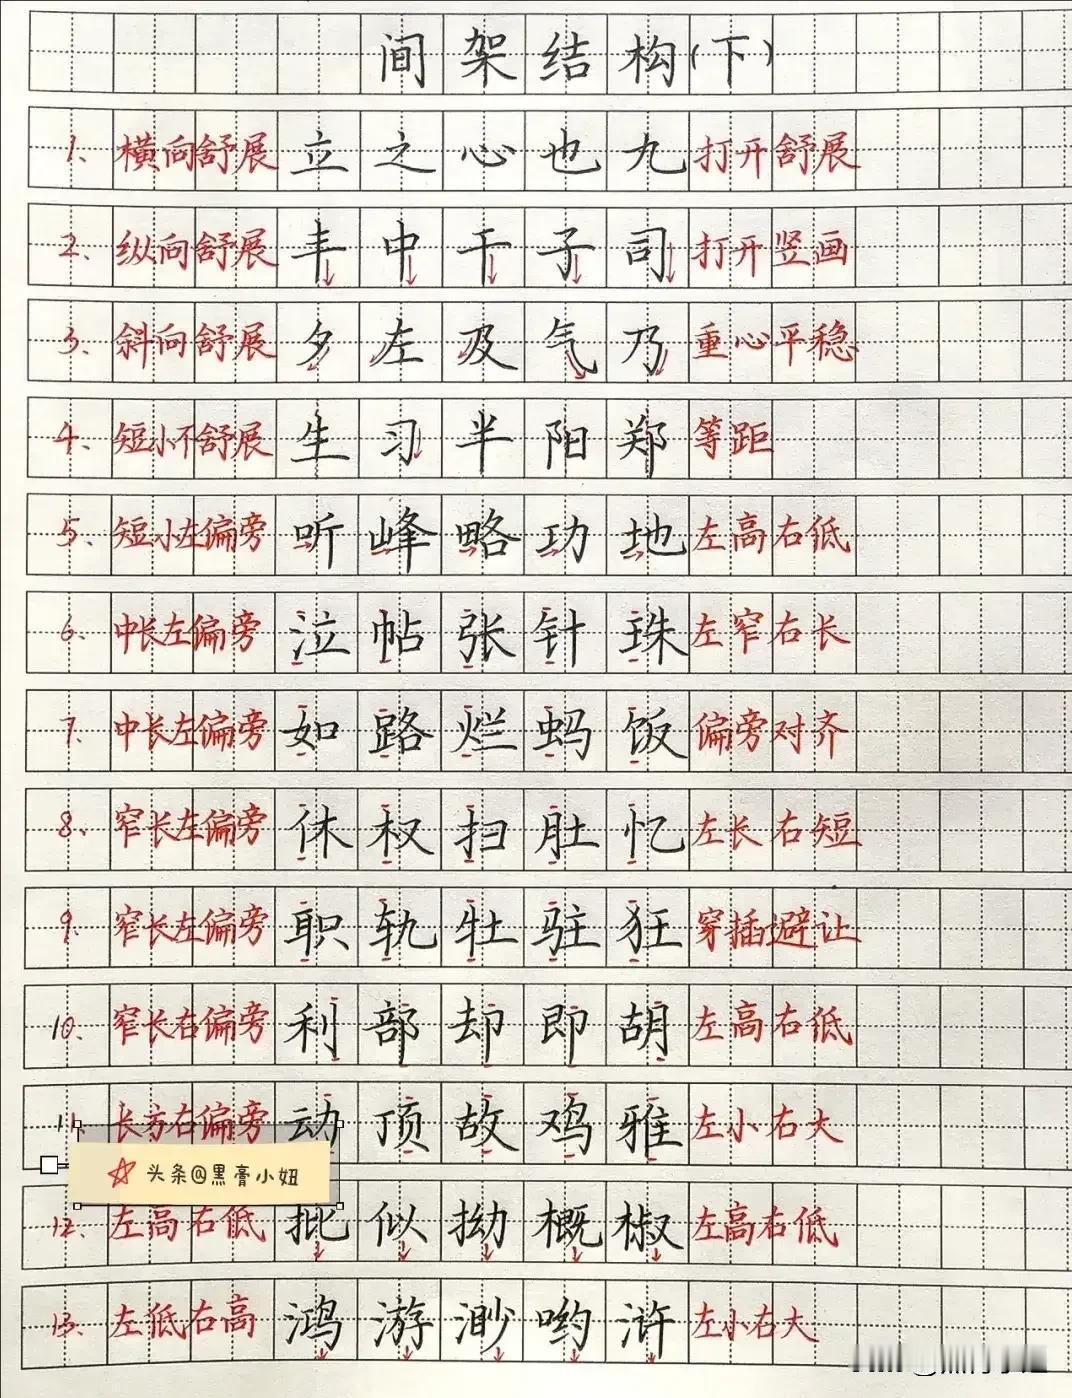 间架结构(下)
1、横向舒展 立之心也九 打开舒展
2、纵向舒展 丰中干子司 打开竖画
3、斜向舒展 夕左及气乃 重心平稳
4、短小不舒展 生习半阳郑 等距
5、短小左偏旁 听峰略功地 左高右低
6、中长左偏旁 泣帖张针珠 左窄右长
7、中长左偏旁 如路烂蚂饭 偏旁对齐
8、窄长左偏旁 休权扫肚忆 左长右短
9、窄长左偏旁 职轨牡驻狂 穿插避让
10、窄长右偏旁 利部却即胡 左高右低
11、长方右偏旁 动顶故鸡雅 左小右大
头条@黑膏小妞
12、左高右低 批似拗概椒 左高右低
13、左低右高 鸿游渺哟浒 左小右大